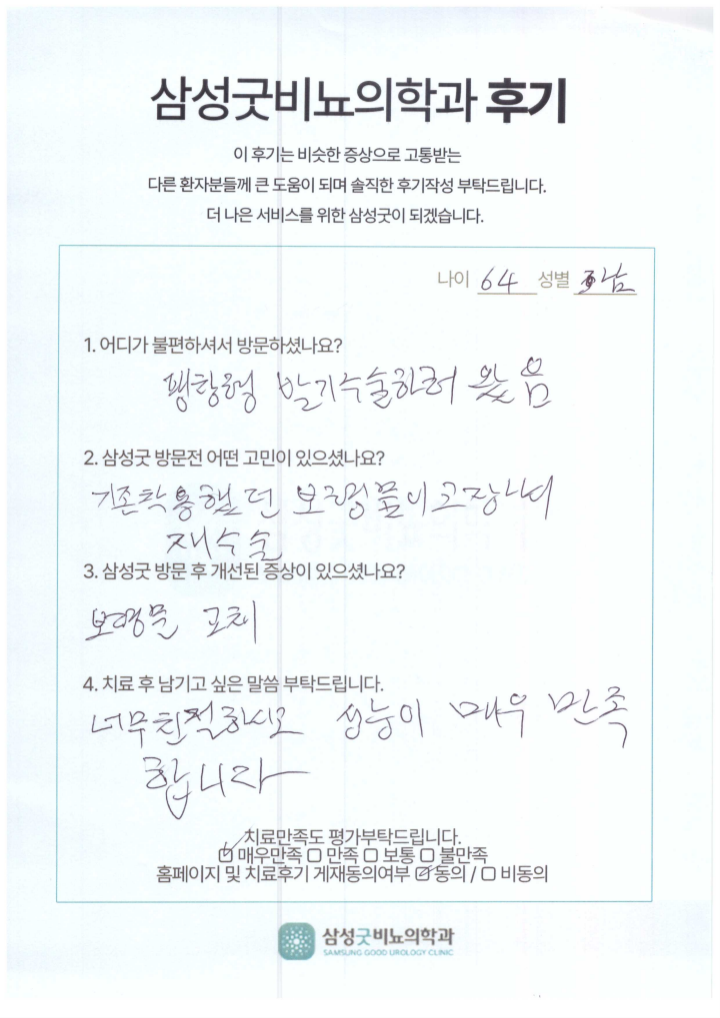 삼성굿비뇨의학과 후기
이 후기는 비슷한 증상으로 고통받는
다른 환자분들께 큰 도움이 되며 솔직한 후기작성 부탁드립니다.
더 나은 서비스를 위한 삼성굿이 되겠습니다.
나이 64 성별 남
1. 어디가 불편하셔서 방문하셨나요?
팽창형 발기수술하러 왔음
2. 삼성굿 방문전 어떤 고민이 있으셨나요?
기존착용했던 보형물이고장나서
재수술
3. 삼성굿 방문 후 개선된 증상이 있으셨나요?
보형물 교체
4. 치료 후 남기고 싶은 말씀 부탁드립니다.
너무친절하시고 성능이 매우 만족
합니다
치료만족도 평가부탁드립니다.
☑ 매우만족 □ 만족 □ 보통 □ 불만족
홈페이지 및 치료후기 게재동의여부 ☑ 동의 / □ 비동의
삼성굿비뇨의학과
SAMSUNG GOOD UROLOGY CLINIC